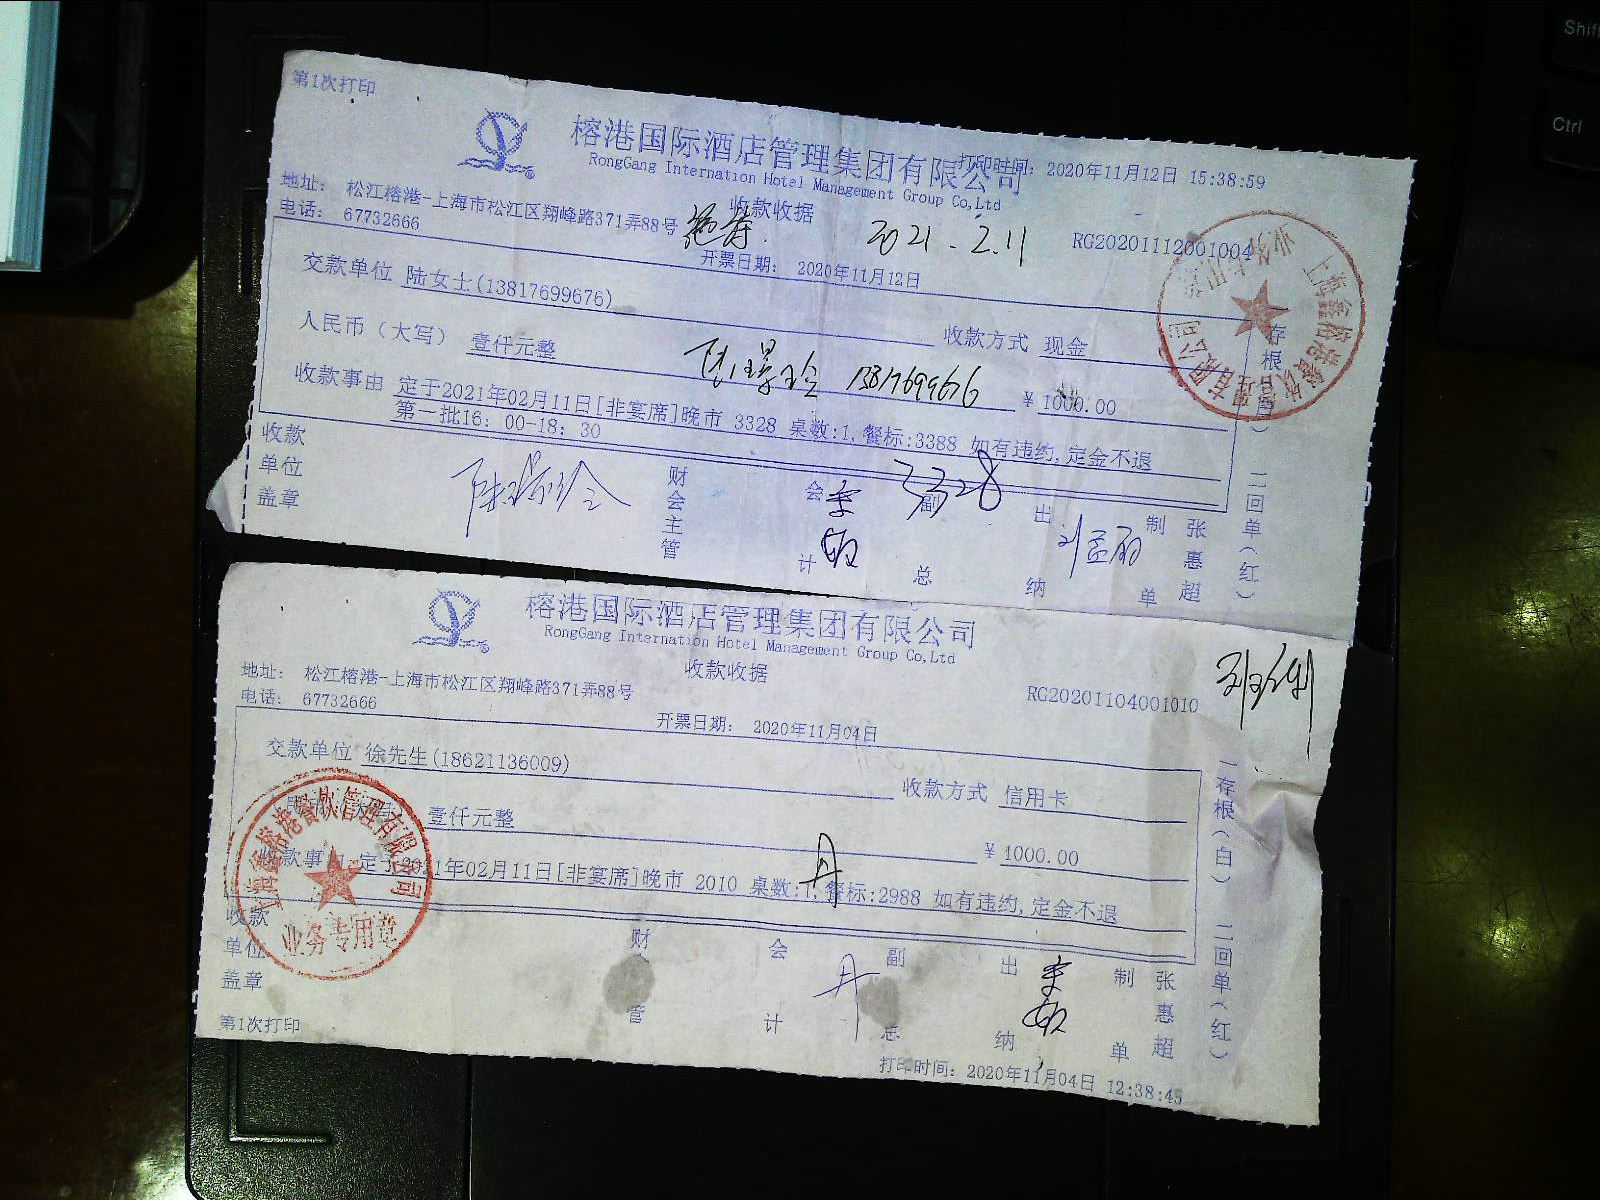 第1次打印
榕港国际酒店管理集团有限公司
打印时间: 2020年11月12日 15:38:59
RongGang Internation Hotel Management Group Co,Ltd
地址: 松江榕港-上海市松江区翔峰路371弄88号
收款收据
2021.2.11
RG20201112001004
电话: 67732666
开票日期: 2020年11月12日
交款单位 陆女士(13817699676)
收款方式 现金
人民币(大写) 壹仟元整
13817699676
¥ 1000.00
收款事由 定于2021年02月11日[非宴席]晚市 3328 桌数:1,餐标:3388 如有违约,定金不退
第一批16: 00-18: 30
收款单位盖章
财会主管
会计 李敏
副总
3328
出纳
制单 张惠超
一存根(白) 二回单(红)
上海鑫榕港餐饮管理有限公司
业务专用章
榕港国际酒店管理集团有限公司
RongGang Internation Hotel Management Group Co,Ltd
收款收据
地址: 松江榕港-上海市松江区翔峰路371弄88号
RG20201104001010
电话: 67732666
开票日期: 2020年11月04日
交款单位 徐先生(18621136009)
收款方式 信用卡
壹仟元整
¥ 1000.00
款事由 定于2021年02月11日[非宴席]晚市 2010 桌数:1,餐标:2988 如有违约,定金不退
丹
收款单位盖章
财 管
会计
丹
副总
出纳 李敏
制单 张惠超
一存根(白) 二回单(红)
上海鑫榕港餐饮管理有限公司
业务专用章
第1次打印
打印时间: 2020年11月04日 12:38:45